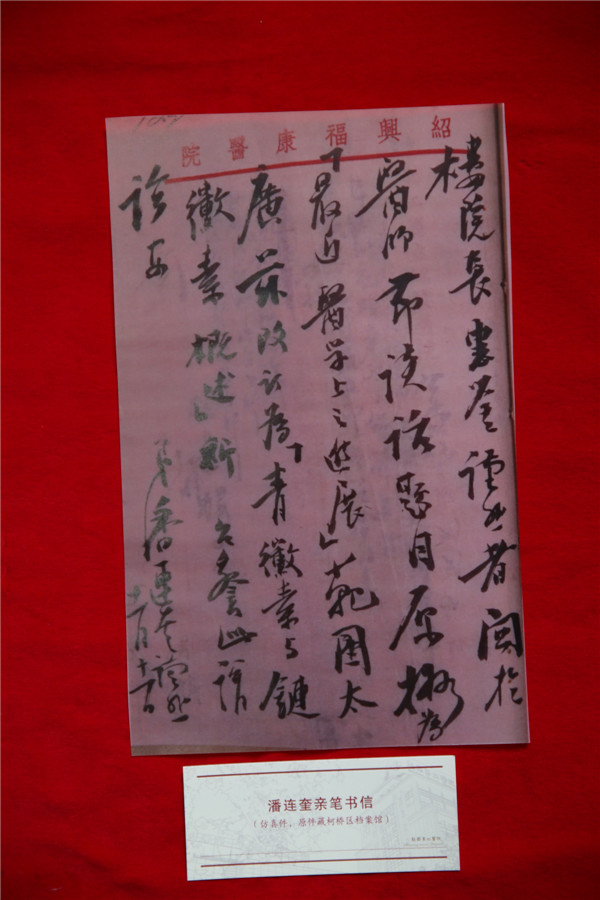 紹興福康醫院
樓院長惠鑒謹者関於
醫師節談話題目原擬為
「最近醫學上之進展」範圍太
廣茲改訂為「青黴素与鏈
黴素概述」台詧此請
診安
弟潘連奎謹啟
潘连奎亲笔书信
（仿真件，原件藏柯桥区档案馆）